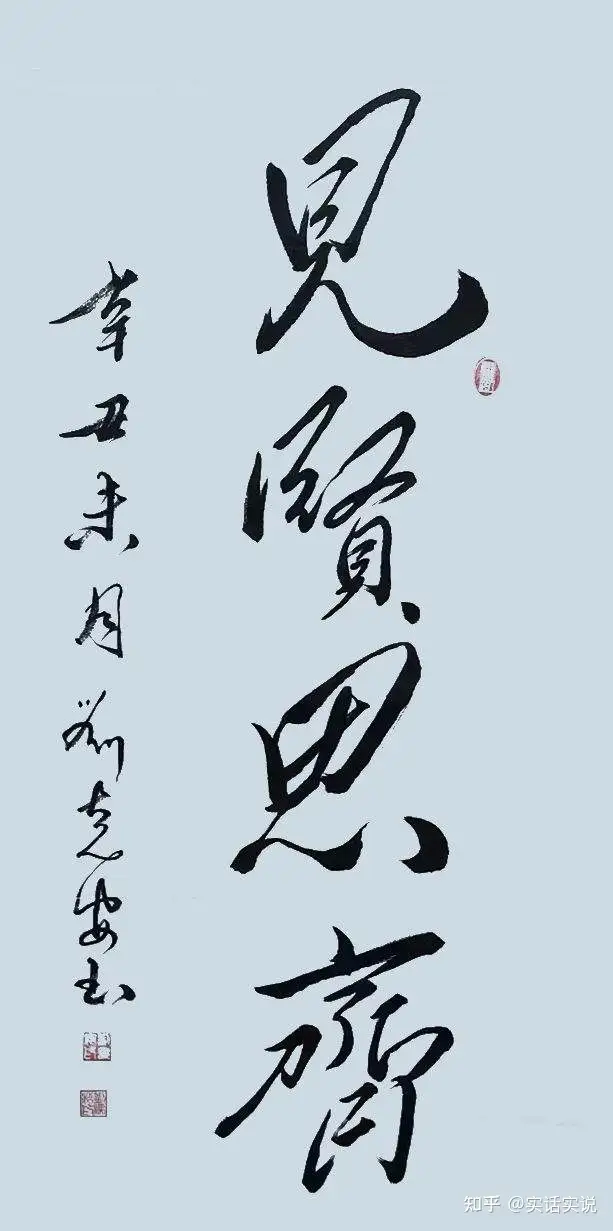 見賢思齊
辛丑未月劉克安书
知乎 @实话实说